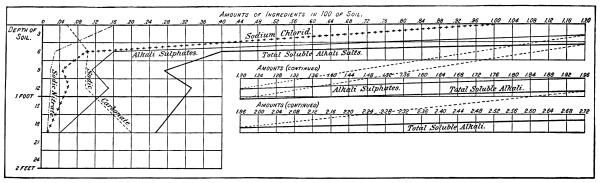 AMOUNTS OF INGREDIENTS IN 100 OF SOIL.
DEPTH OF SOIL.
0 .04 .08 .12 .16 .20 .24 .28 .32 .36 .40 .44 .48 .52 .56 .60 .64 .68 .72 .76 .80 .84 .88 .92 .96 1.00 1.04 1.08 1.12 1.16 1.20
3
Sodium Chlorid.
6
Alkali Sulphates.
Total Soluble Alkali Salts.
AMOUNTS (CONTINUED)
1.20 1.24 1.28 1.32 1.36 1.40 1.44 1.48 1.52 1.56 1.60 1.64 1.68 1.72 1.76 1.80 1.84 1.88 1.92 1.96
9
Alkali Sulphates.
Total Soluble Alkali.
1 FOOT 12
Sodic Nitrate
Sodic Carbonate
AMOUNTS (CONTINUED)
1.96 2.00 2.04 2.08 2.12 2.16 2.20 2.24 2.28 2.32 2.36 2.40 2.44 2.48 2.52 2.56 2.60 2.64 2.68 2.72
15
18
Total Soluble Alkali.
21
24
2 FEET